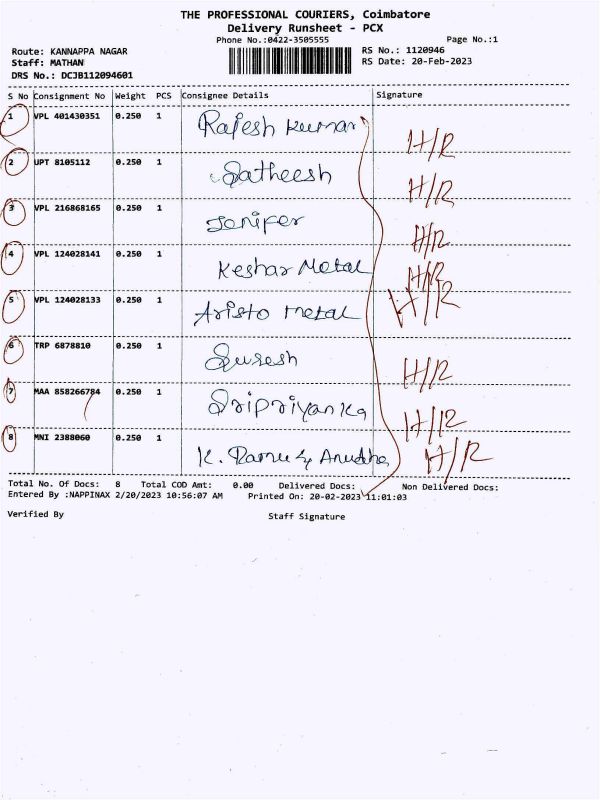 THE PROFESSIONAL COURIERS, Coimbatore
Delivery Runsheet - PCX
Phone No.:0422-3505555
Page No.:1
Route: KANNAPPA NAGAR
RS No.: 1120946
Staff: MATHAN
RS Date: 20-Feb-2023
DRS No.: DCJB112094601
S No Consignment No Weight PCS Consignee Details Signature
1 VPL 401430351 0.250 1 Rajesh Kumar H/R
2 UPT 8105112 0.250 1 Satheesh H/R
3 VPL 216868165 0.250 1 Jenifer H/R
4 VPL 124028141 0.250 1 Keshar Metal H/R
5 VPL 124028133 0.250 1 Aristo metal H/R
6 TRP 6878810 0.250 1 Suresh H/R
7 MAA 858266784 0.250 1 Sripriyanka H/R
8 MNI 2388060 0.250 1 K. Ramu & Anudha H/R
Total No. Of Docs: 8 Total COD Amt: 0.00 Delivered Docs: Non Delivered Docs:
Entered By :NAPPINAX 2/20/2023 10:56:07 AM Printed On: 20-02-2023 11:01:03
Verified By Staff Signature